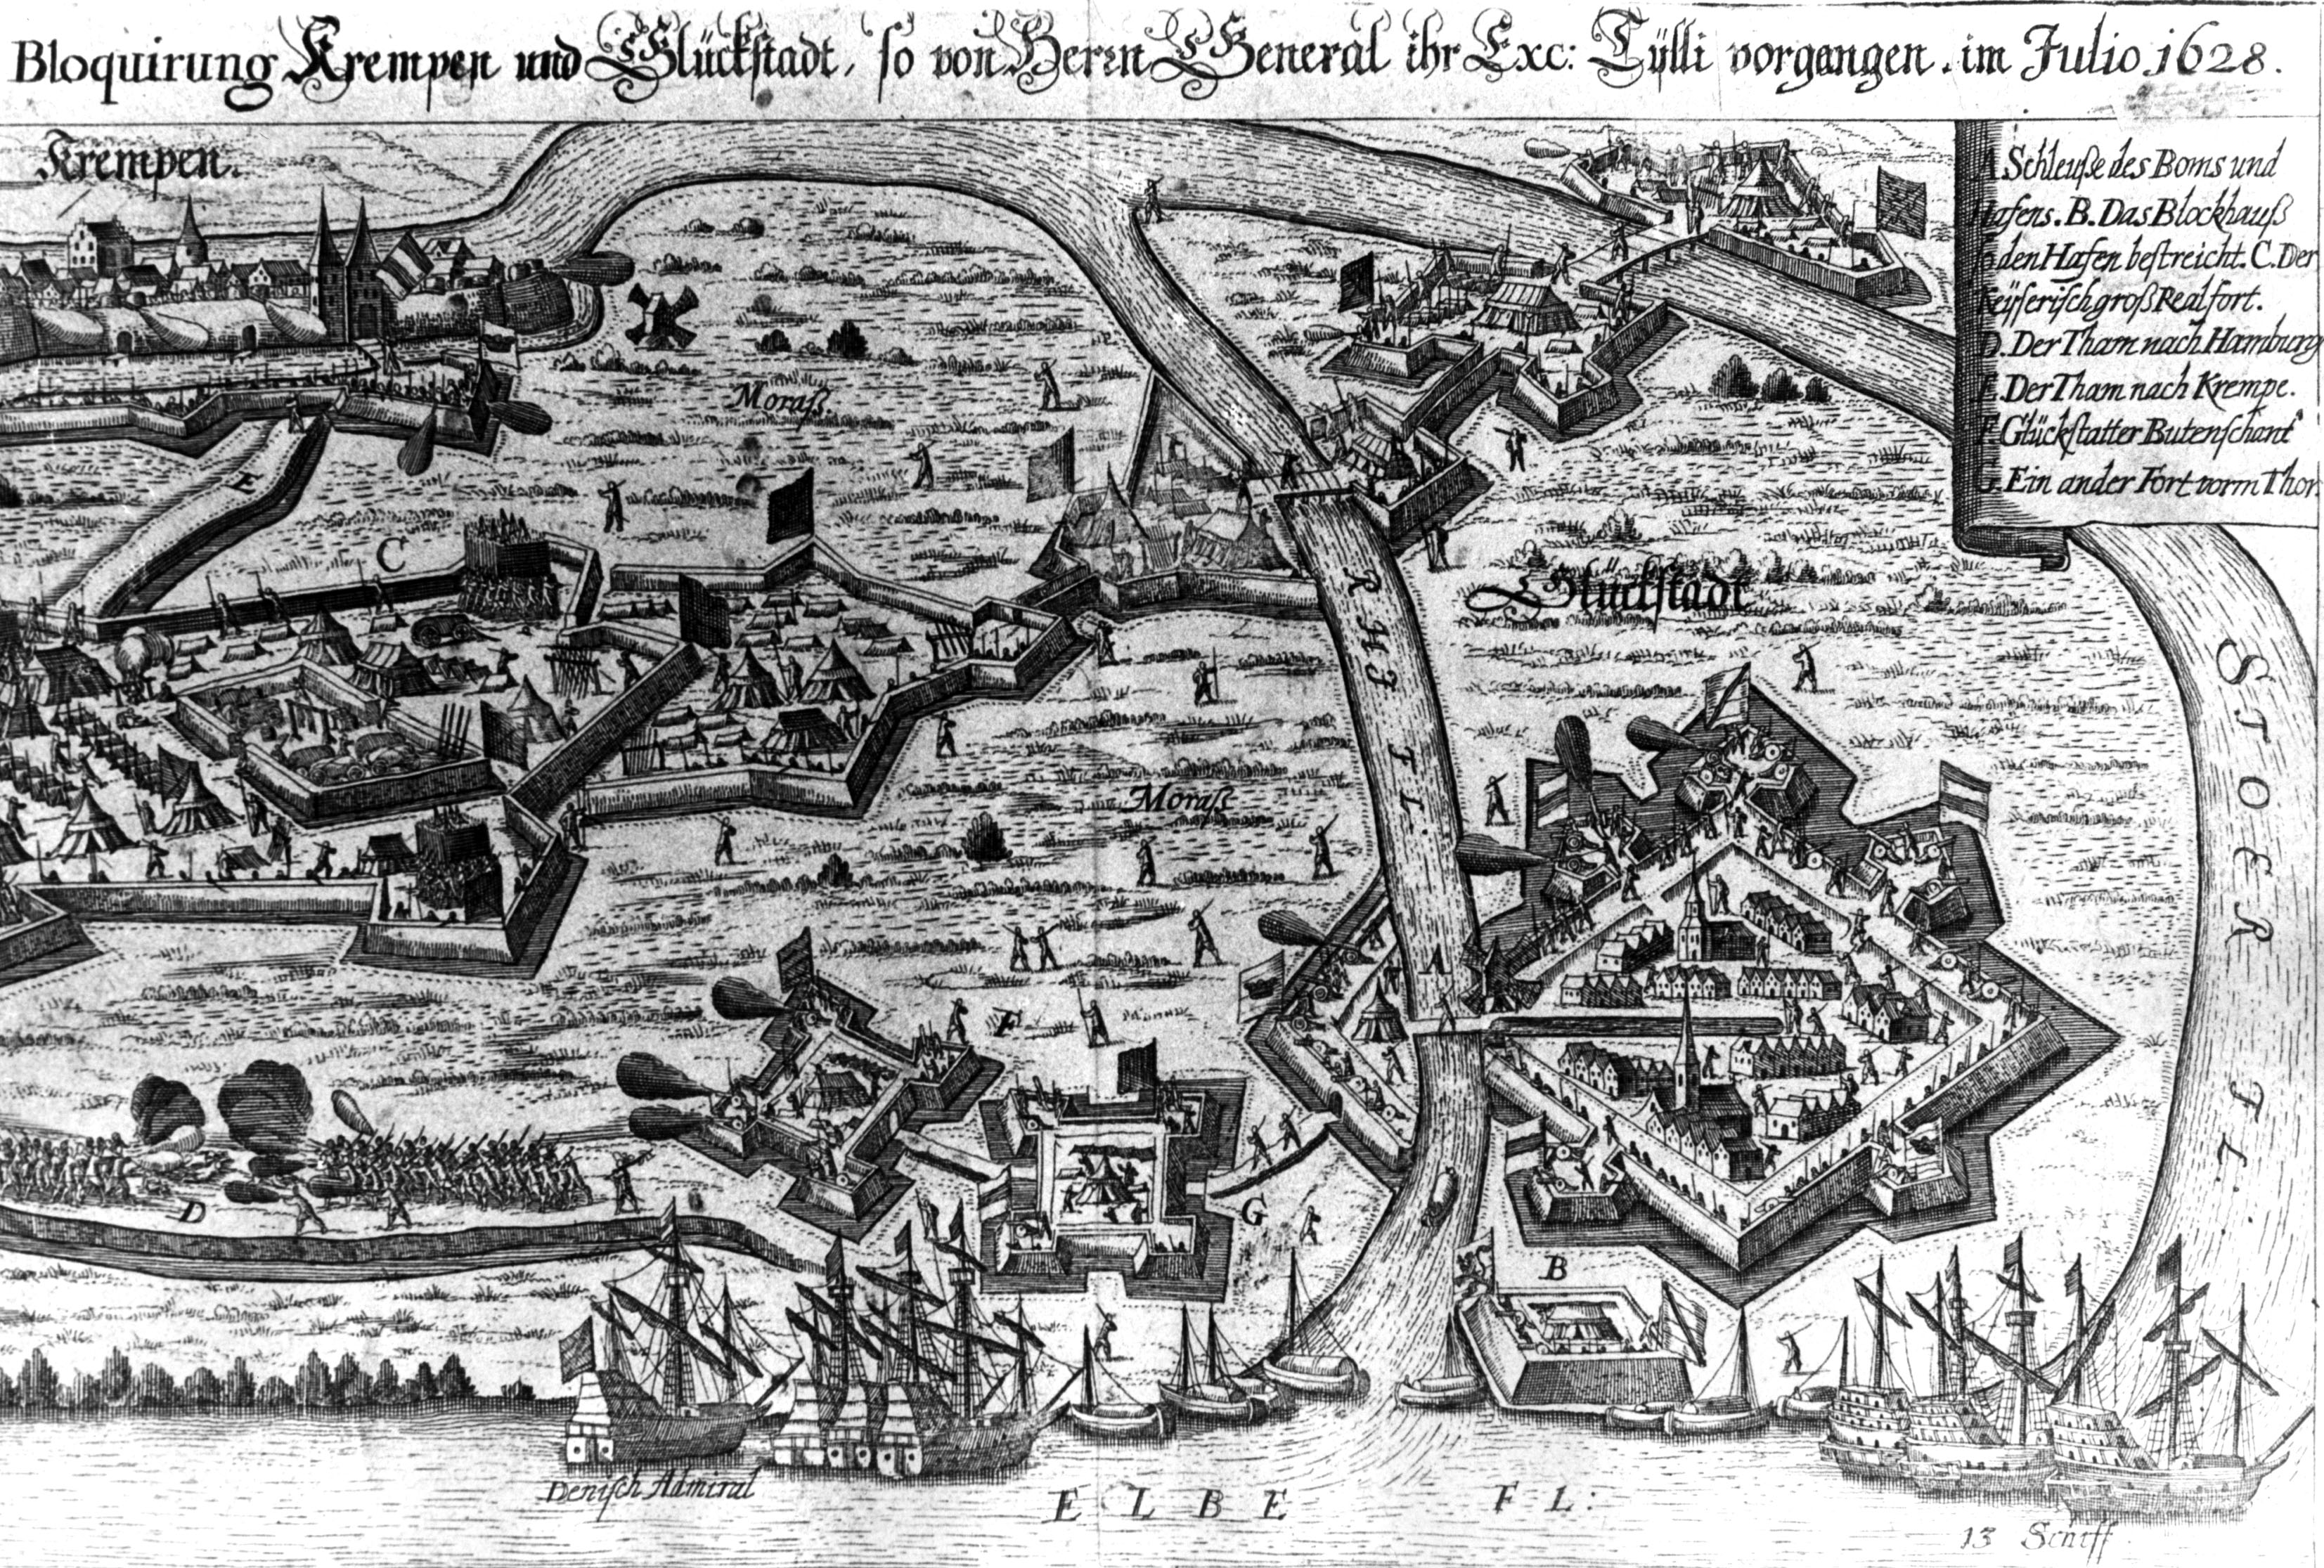 Bloquirung Krempen und Glückstadt, so von Herrn General ihr Exc: Tÿlli vorgangen. im Julio 1628.
Krempen.
A Schleuße des Boms und
Hafens. B. Das Blockhauß
so den Hafen bestreicht. C. Der
Keÿserisch groß Real fort.
D. Der Tham nach Hamburg
E. Der Tham nach Krempe.
F. Glückstatter Butenschant
G. Ein ander Fort vorm Thor
Moraß
E
C
RHI FL.
Glückstadt
STOER FL.
Moraß
A
F
D
G
B
Denisch Admiral
ELBE FL:
13 Schiff